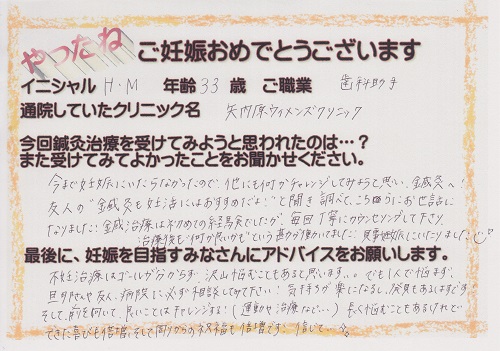 やったね
ご妊娠おめでとうございます
イニシャル H・M 年齢 33 歳 ご職業 歯科助手
通院していたクリニック名 矢内原ウィメンズクリニック
今回鍼灸治療を受けてみようと思われたのは…?
また受けてみてよかったことをお聞かせください。
今まで妊娠にいたらなかったので、他にも何かチャレンジしてみようと思い、鍼灸へ!
友人の"鍼灸も妊活にはおすすめだよ!"と聞き調べて、こうゆうにお世話に
なりました!鍼治療は初めての経験でしたが、毎回丁寧にカウンセリングして下り、
治療後も"何か良いかも"という が働いてました!見事妊娠にいたりました!!
最後に、妊娠を目指すみなさんにアドバイスをお願いします。
不妊治療はゴールが分からず、沢山悩むこともあると思います。でも1人で悩まず、
旦那さんや友人、病院に必ず相談してみて下さい!気持ちが楽になるし、発見もあるはずです
そして、前を向いて、良いことはチャレンジする!(運動や治療など…)長く悩むこともあるけれど
できた喜びも倍増、そして周りからの祝福も倍増です!信じて…☆